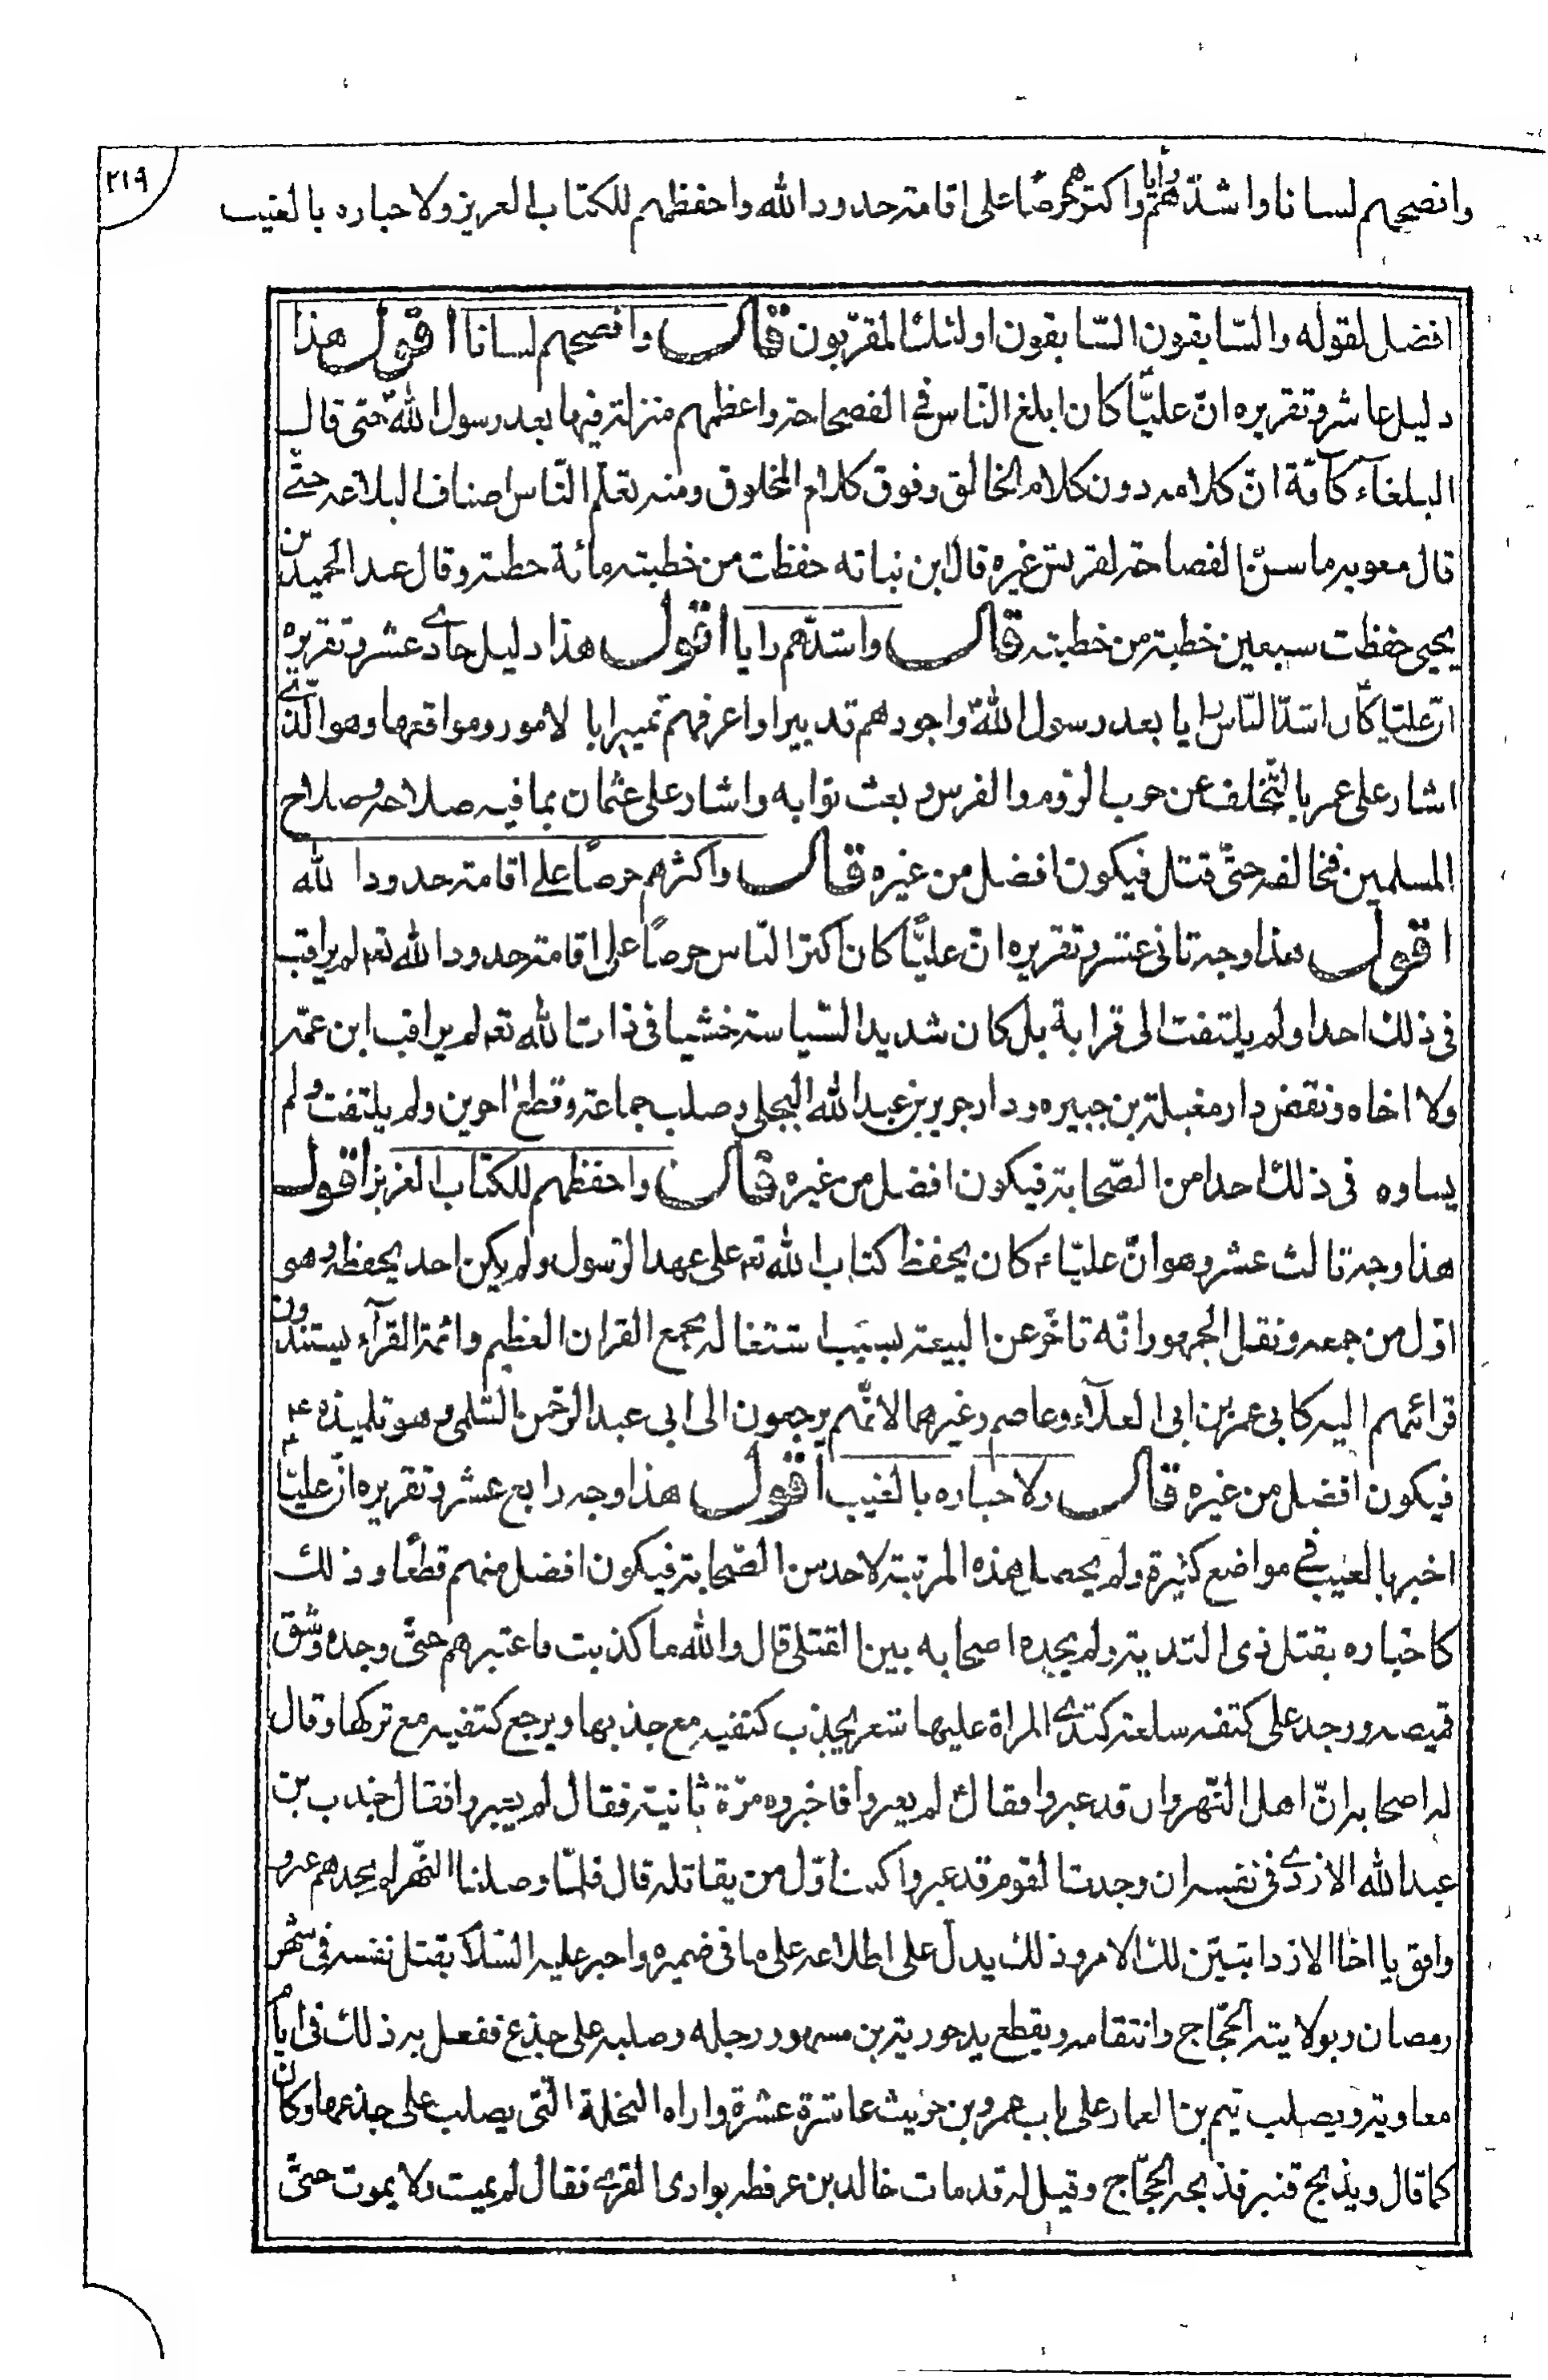 ٢١٩
وافصحهم لسانا واشدّهم رأيا واكثرهم حرصًا على اقامة حدود الله واحفظهم للكتاب العزيز ولاخباره بالغيب
افضل لقوله والسّابقون السّابقون اولئك المقرّبون قال وافصحهم لسانا اقول هذا
دليل عاشر وتقريره انّ عليّا كان ابلغ النّاس في الفصاحة واعظمهم منزلة فيها بعد رسول الله حتى قال
البلغآء كآفّة انّ كلامه دون كلام الخالق وفوق كلام المخلوق ومنه تعلّم النّاس اصناف البلاغة حتّى
قال معويه ما سنّ الفصاحة لقريش غيره قال ابن نباته حفظت من خطبته مائة خطبة وقال عبد الحميد بن
يحيى حفظت سبعين خطبة من خطبته قال واشدّهم رايا اقول هذا دليل حادي عشر وتقريره
انّ عليّا كان اشدّ النّاس رايا بعد رسول الله واجودهم تدبيرا واعرفهم تميزا بالامور ومواقعها وهو الّذي
اشار على عمر بالتّخلف عن حرب الرّوم والفرس وبعث نوابه واشار على عثمان بما فيه صلاحه وصلاح
المسلمين فخالفه حتّى قتل فيكون افضل من غيره قال واكثرهم حرصًا على اقامة حدود الله
اقول هذا وجه ثاني عشر وتقريره انّ عليّا كان اكثر النّاس حرصًا على اقامة حدود الله تعه لم يراقب
في ذلك احدا ولم يلتفت الى قرابة بل كان شديد السّياسة خشيا في ذات الله تعه لم يراقب ابن عمّه
ولا اخاه ونقض دار مغبلة بن جبيره ودار جرير بن عبد الله البجلي وصلب جماعة وقطع اخرين ولم يلتفت ولم
يساوه في ذلك احدا من الصّحابة فيكون افضل من غيره قال واحفظهم للكتاب العزيز اقول
هذا وجه ثالث عشر وهو انّ عليّا ع كان يحفظ كتاب الله تعه على عهد الرّسول ولم يكن احد يحفظه وهو
اوّل من جمعه ونقل الجمهور انّه تاخّر عن البيعة بسبب اشتغاله بجمع القران العظيم وائمة القرآء يستندون
قوائمهم اليه كابي عمر بن ابي العلآء وعاصم وغيرهما لانّهم يرجعون الى ابي عبد الرّحمن السّلمي وهو تلميذه ع
فيكون افضل من غيره قال ولاخباره بالغيب اقول هذا وجه رابع عشر وتقريره انّ عليّا
اخبر بالغيب في مواضع كثيرة ولم يحصل هذه المرتبة لاحد من الصّحابة فيكون افضل منهم قطعًا وذلك
كاخباره بقتل ذي الثدية ولم يجده اصحابه بين القتلى قال والله ما كذبت فاعتبرهم حتّى وجده وشق
قميصه ووجد على كتفه سلعة كثدي المراة عليها شعر يجذب كتفيه مع جذبها ويرجع كتفيه مع تركها وقال
له اصحابه انّ اهل النّهروان قد عبروا فقال لم يعبروا فاخبروه مرّة ثانية فقال لم يعبروا فقال جندب بن
عبد الله الازدي في نفسه ان وجدت القوم قد عبروا كنت اوّل من يقاتله قال فلمّا وصلنا النّهر لم يجدهم عبروا
وافق يا اخا الازد اتبيّن لك الامر وذلك يدلّ على اطلاعه على ما في ضميره واخبر عليه السّلام بقتل نفسه في شهر
رمضان وبولاية الحجّاج وانتقامه وبقطع يد جورية بن مسهر ورجله وصلبه على جذع ففعل به ذلك في ايام
معاوية وبصلب تيم بن العمار على باب عمرو بن حريث عاشرة عشرة واراه النخلة التي يصلب على جذعها وكان
كما قال وبذبح قنبر فذبحه الحجّاج وقيل له قد مات خالد بن عرفطه بوادي القرى فقال لم يمت ولا يموت حتّى